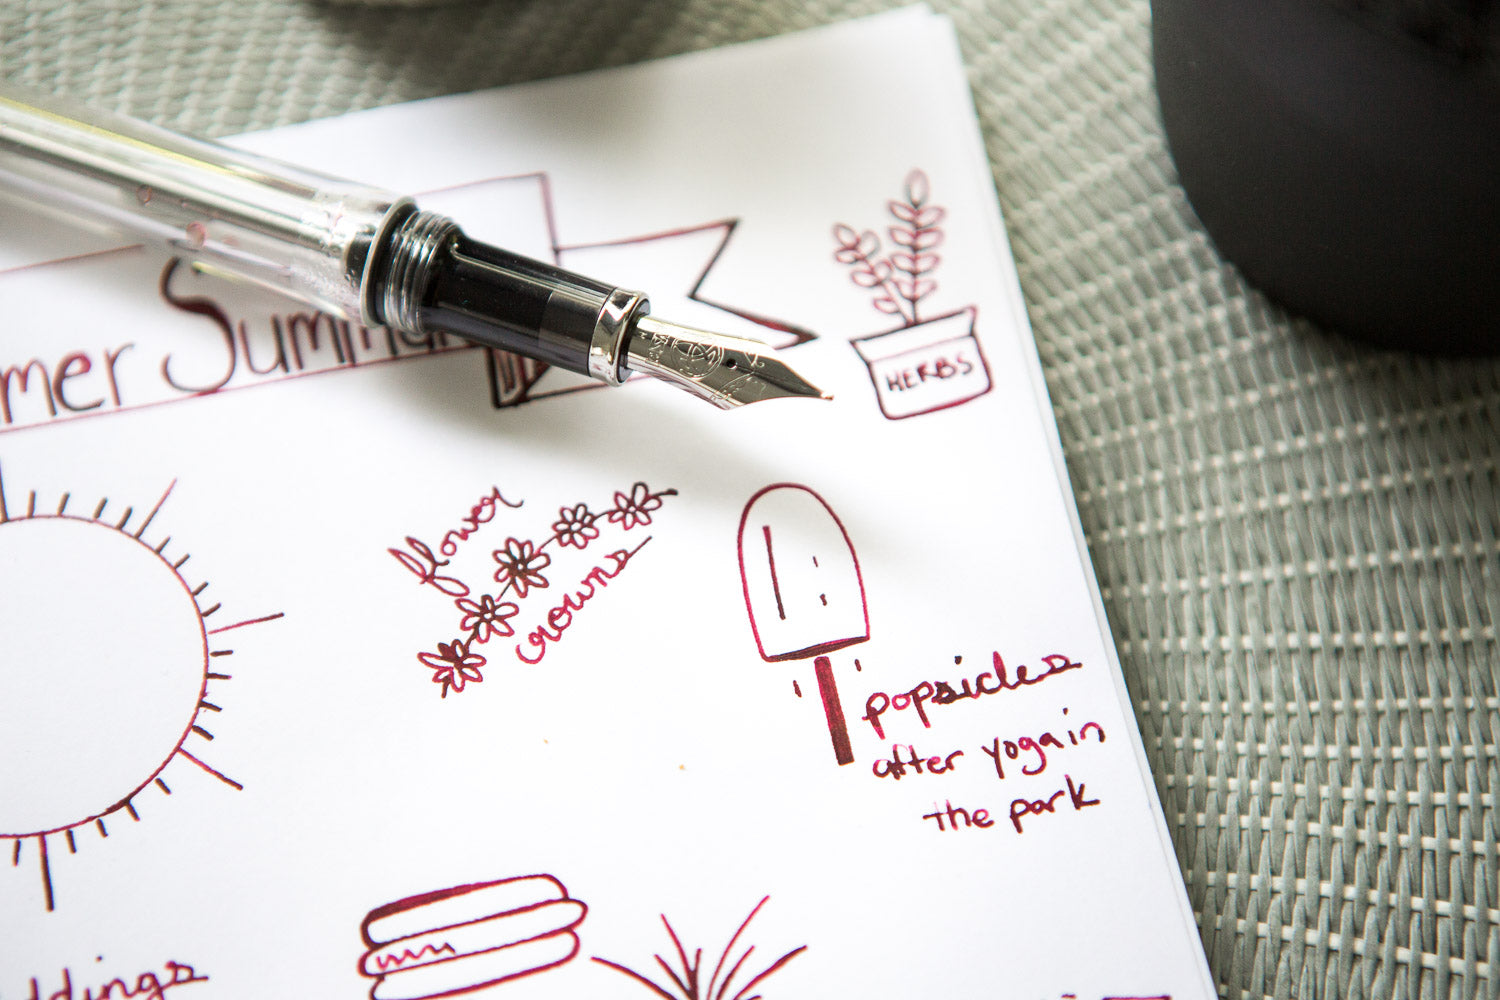 mer Summ
HERBS
flower
crowns
popsicles
after yoga in
the park
ddings